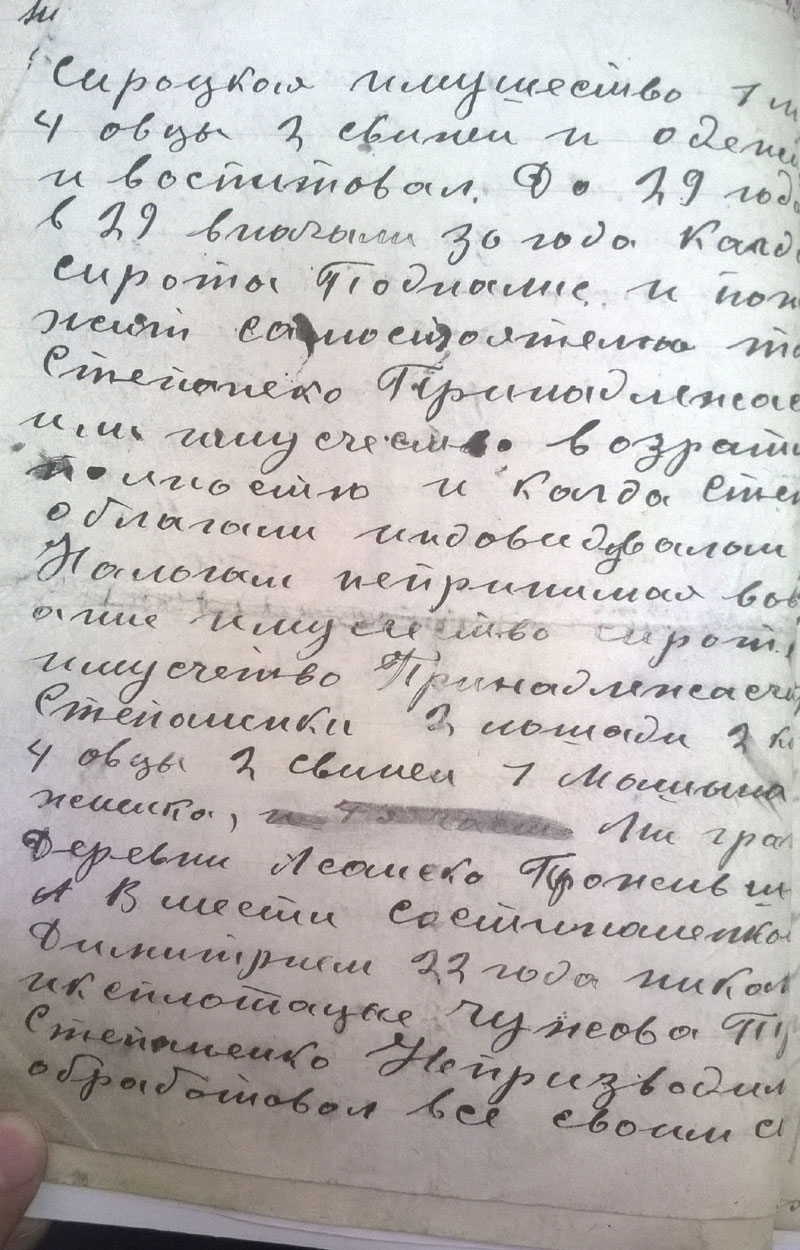 сироцкая имушество 1
4 овцы 2 свинеи и одежи
и воспитовал. До 29 года
в 29 вначали 30 года Калда
сироты Поднялис и пон
жит самостоятелно
Степанеко Принадлежае
им имусчество возрати
полностю и калда Степ
облагали индовидувалом
Налогам непринимая вов
ание имусчество сирот
имусчетво Принадлежасчи
Степаненки 2 лошади 2 к
4 овцы 2 свинеи 1 Машына
женика, Ми гра
Деревни Ясанеко Прожив
А Вмести состипаненко
Димитрием 22 года никал
иксплотацые чужова Тр
Степаненко Непризводил
обработовал все своим с